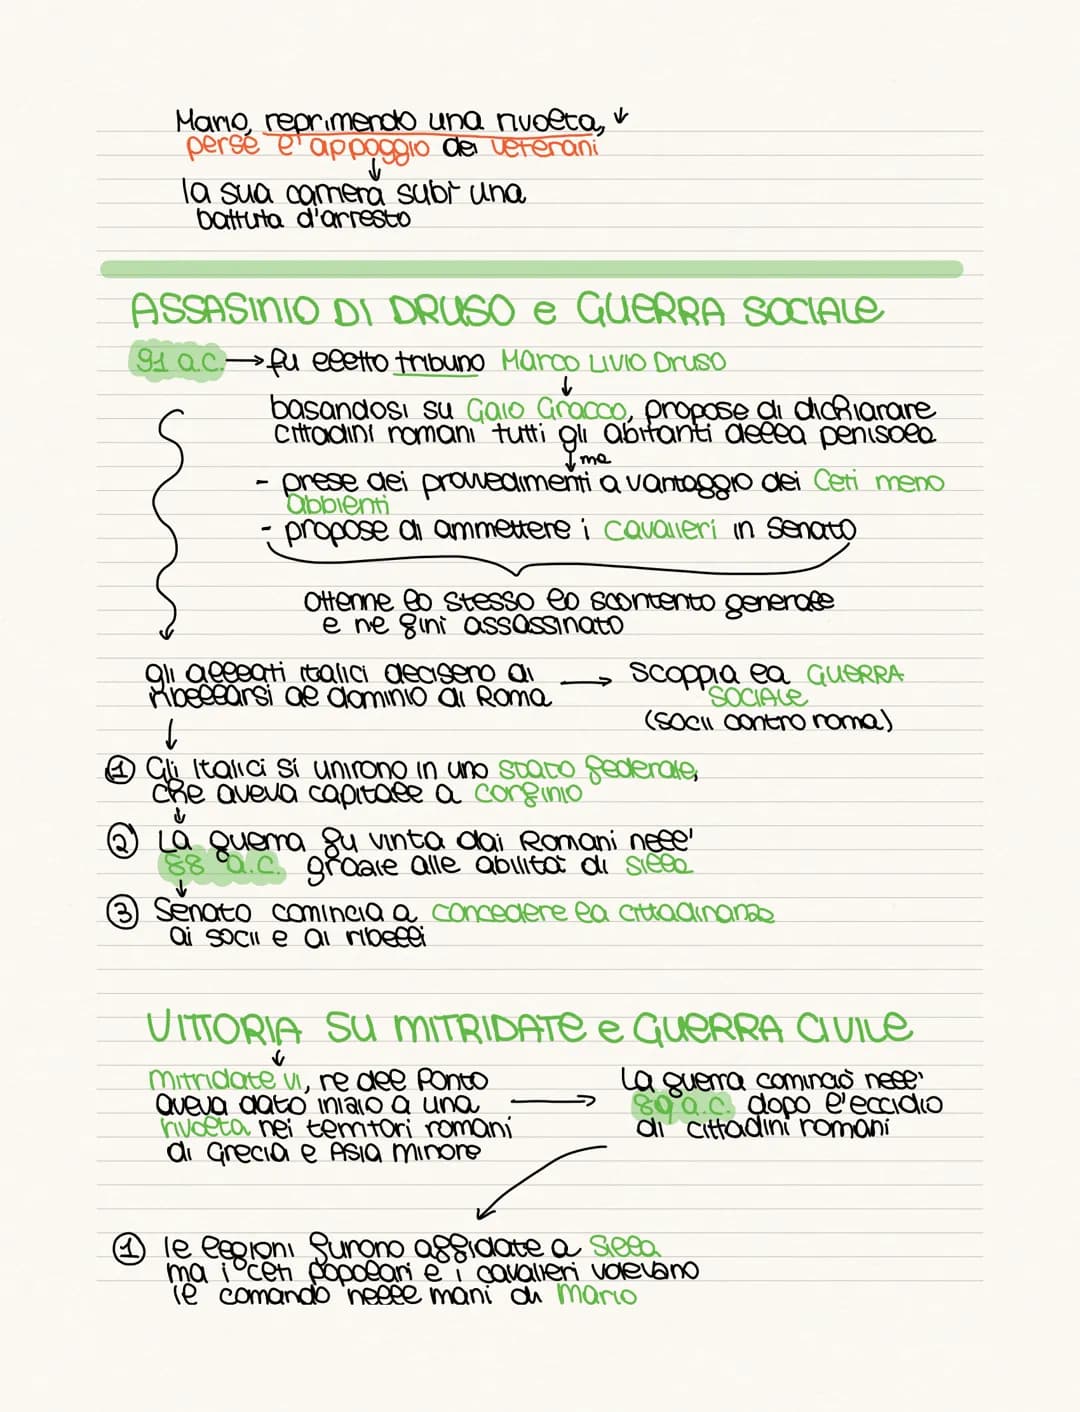 Mario, reprimendo una rivolta, ↓
perse l'appoggio dei veterani
↓
la sua carriera subì una
battuta d'arresto
ASSASINIO DI DRUSO e GUERRA SOCIALE
91 a.C. → fu eletto tribuno Marco Livio Druso
↓
basandosi su Gaio Gracco, propose di dichiarare
cittadini romani tutti gli abitanti della penisola
↓ ma
- prese dei provvedimenti a vantaggio dei Ceti meno
abbienti
- propose di ammettere i cavalieri in Senato
Ottenne lo stesso lo scontento generale
e ne finì assassinato
gli alleati italici decisero di → Scoppia la GUERRA
ribellarsi al dominio di Roma SOCIALE
(socii contro roma)
↓
① Gli Italici si unirono in uno stato federale,
che aveva capitale a Corfinio
↓
② La guerra fu vinta dai Romani nell'
88 a.C. grazie alle abilità di Silla
↓
③ Senato comincia a concedere la cittadinanza
ai socii e ai ribelli
VITTORIA SU MITRIDATE e GUERRA CIVILE
↓
Mitridate VI, re del Ponto La guerra cominciò nell'
aveva dato inizio a una → 89 a.C. dopo l'eccidio
rivolta nei territori romani di cittadini romani
di Grecia e Asia Minore
① le legioni furono affidate a Silla
ma i ceti popolari e i cavalieri volevano
il comando nelle mani di Mario